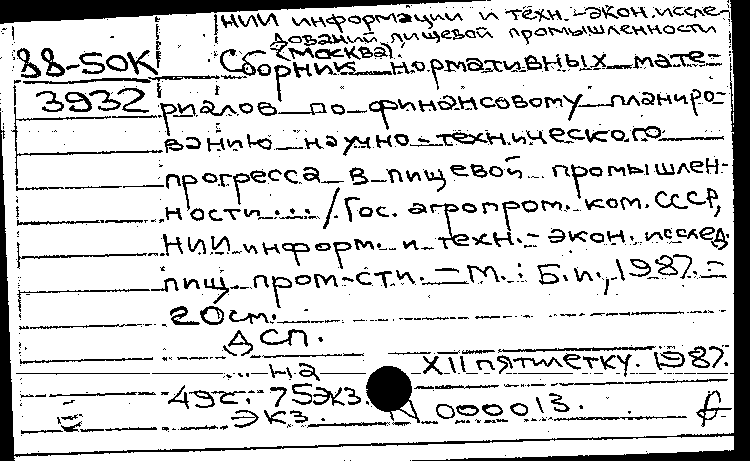 НИИ информации и техн.-экон. иссле-
дований пищевой промышленности
(Москва).
88-50К Сборник нормативных мате-
3932 риалов по финансовому планиро-
ванию научно-технического
прогресса в пищевой промышлен-
ности... / Гос. агропром. ком. СССР,
НИИ информ. и техн.-экон. исслед.
пищ. пром-сти. - М.: Б.и., 1987. -
20 см.
ДСП.
... на XII пятилетку. 1987.
49с. 75экз.
экз. N 000013.